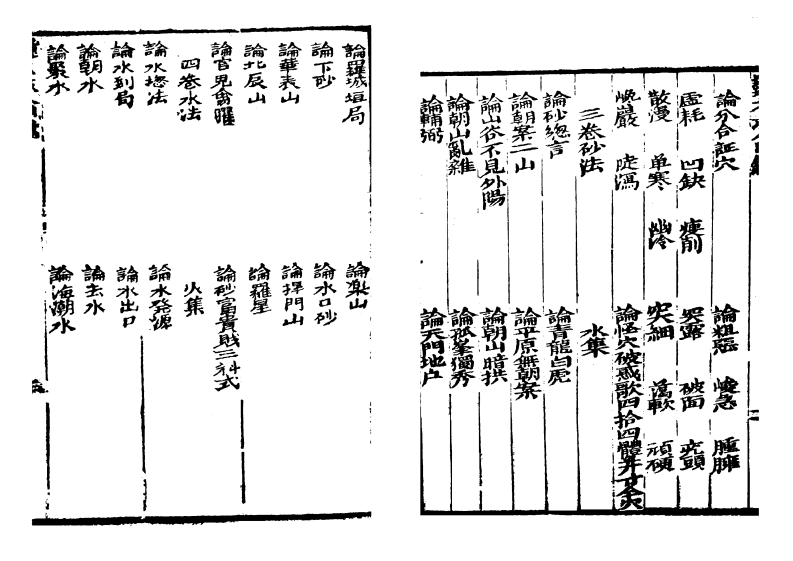 論分合証穴　論粗惡　峻急　臃腫
虛耗　凹缺　瘦削　突露　破面　疙頭
散漫　单寒　幽冷　突細　蕩軟　頑硬
巉巖　陡瀉　論怪穴破惑歌四拾四體并廿金穴
三卷砂法　水集
論砂總言　論青龍白虎
論朝案二山　論平原無朝案
論山谷不見外陽　論朝山暗拱
論朝山亂雜　論孤峯獨秀
論輔弼　論天門地户
論羅城垣局　論樂山
論下砂　論水口砂
論華表山　論捍門山
論北辰山　論羅星
論官鬼禽曜　論砂富貴賤三科式
四卷水法　火集
論水总法　論水發源
論水到局　論水出口
論朝水　論去水
論聚水　論海潮水